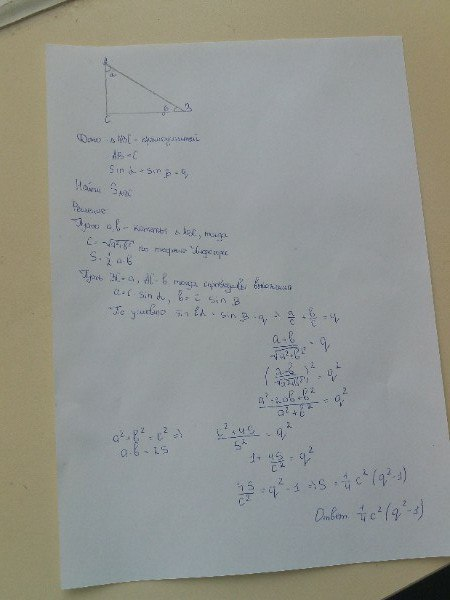 A
α
C
β
B
Дано: △ABC - прямоугольный
AB = C
sin α + sin β = q
Найти: S ABC
Решение
Пусть a, b - катеты △ABC, тогда
C = √(a²+b²) по теореме Пифагора
S = 1/2 a·b
Пусть BC = a, AC = b тогда справедливы
a = c · sin α, b = c · sin β
По условию sin α + sin β = q => a/c + b/c = q
(a+b)/√(a²+b²) = q
)² = q²
(a²+2ab+b²)/(a²+b²) = q²
a² + b² = c² =>
a·b = 2S
= q²
1 + 4S/c² = q²
4S/c² = q² - 1 => S = 1/4 c² (q² - 1)
Ответ: 1/4 c² (q² - 1)